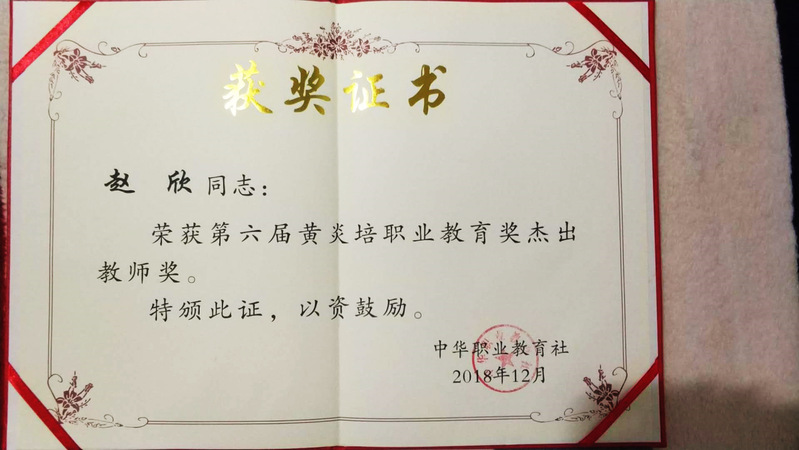 获奖证书
赵 欣 同志：
荣获第六届黄炎培职业教育奖杰出
教师奖。
特颁此证，以资鼓励。
中华职业教育社
2018年12月